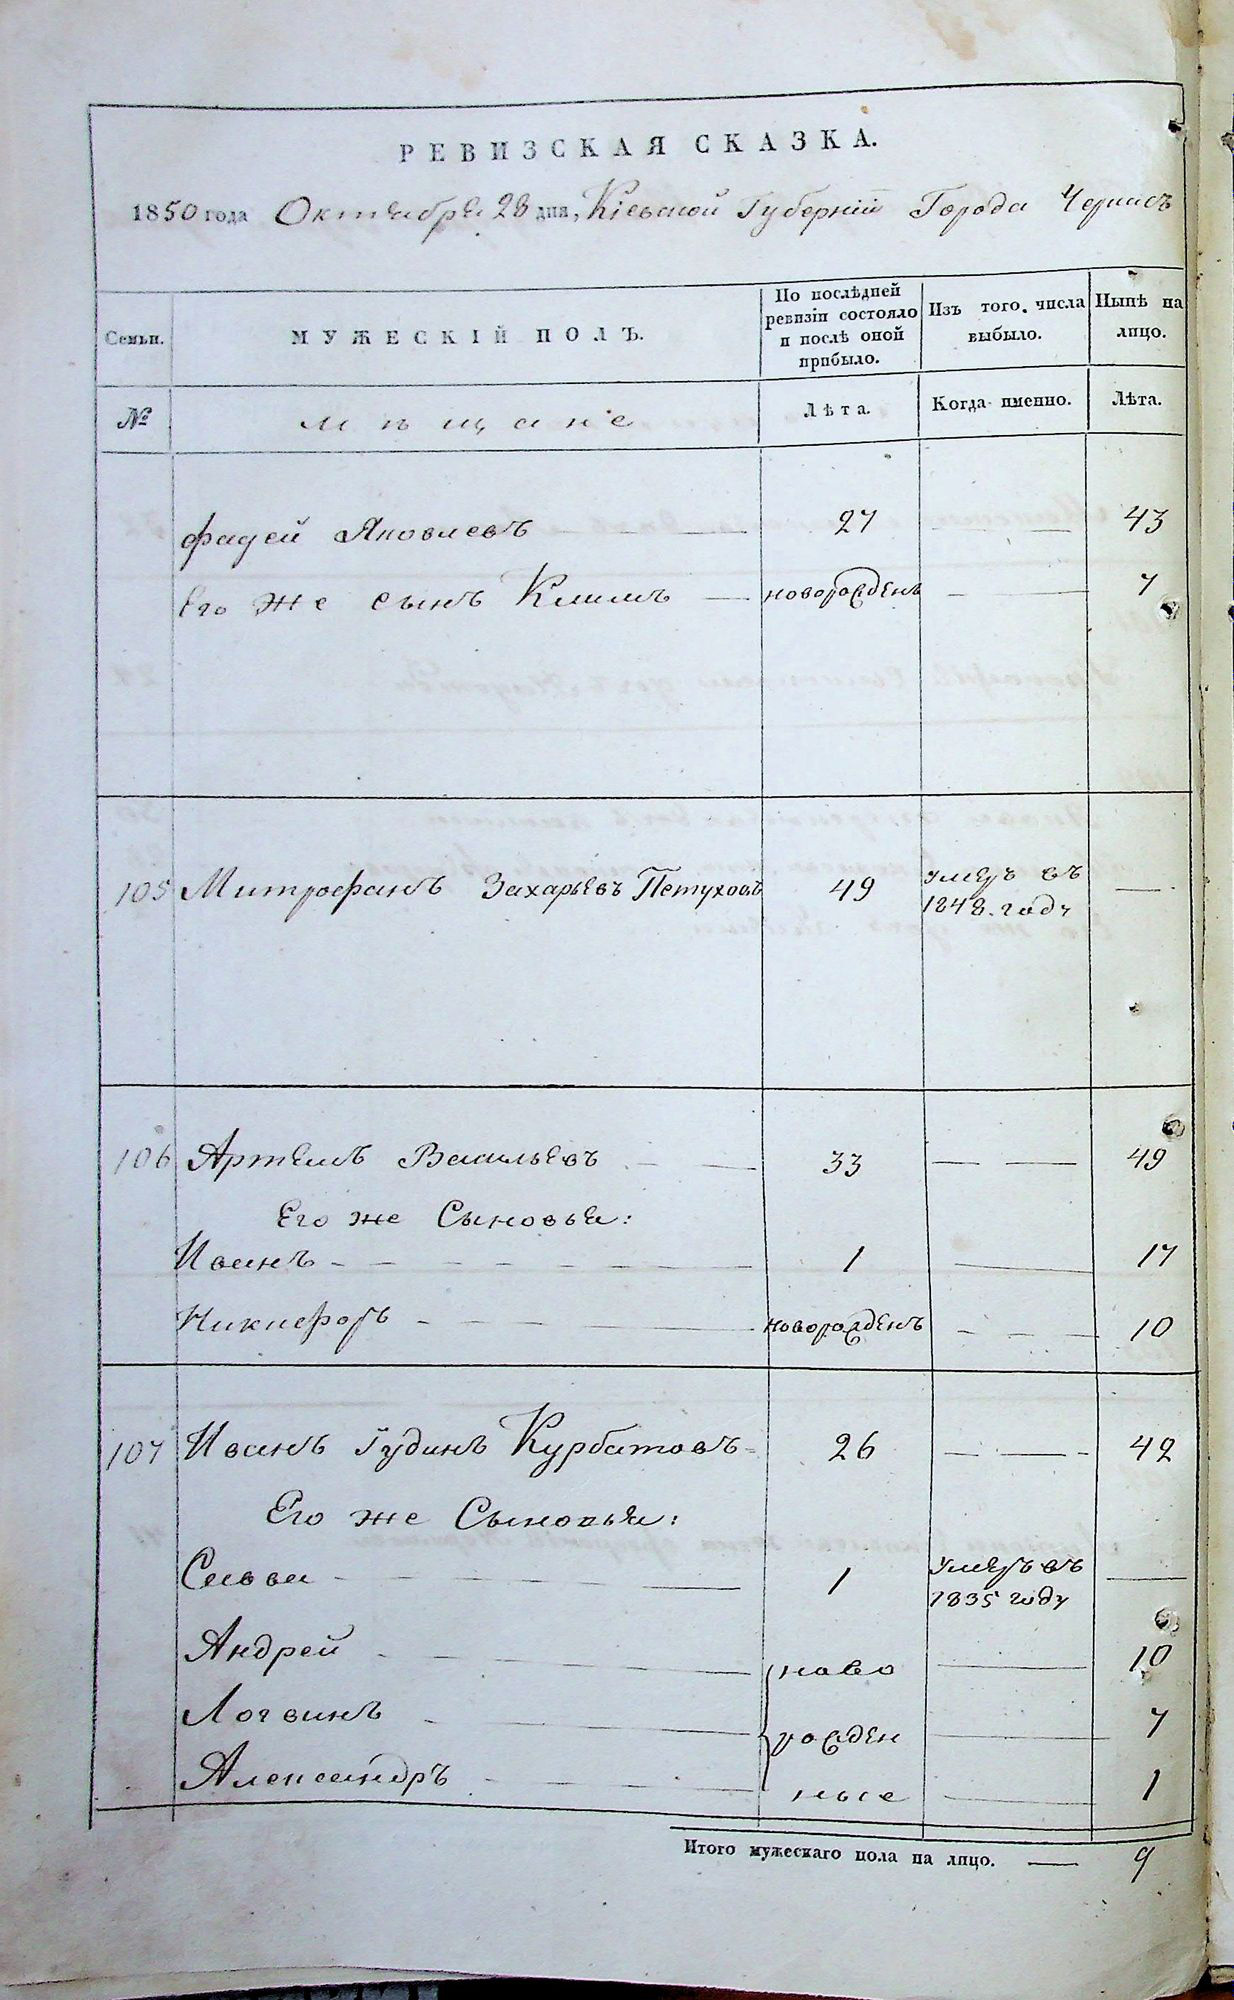 РЕВИЗСКАЯ СКАЗКА.
1850 года Октября 28 дня, Кіевской Губерніи Города Черкасъ
Семьи. МУЖЕСКІЙ ПОЛЪ. По послѣдней ревизіи состояло и послѣ оной прибыло. Изъ того числа выбыло. Нынѣ на лицо.
№ мѣщане Лѣта. Когда именно. Лѣта.
Фадей Яковлевъ 27 — 43
Его же сынъ Климъ — новорожденъ — 7
105 Митрофанъ Захарьевъ Петуховъ 49 умеръ въ 1848. году —
106 Артемъ Васильевъ — — 33 — — 49
Его же Сыновья:
Иванъ — 1 — 17
Никифоръ — новорожденъ — 10
107 Иванъ Гудинъ Курбатовъ 26 — — 42
Его же Сыновья:
Савва — 1 умеръ въ 1835 году —
Андрей — ново — 10
Логвинъ — рожден — 7
Александръ — ные — 1
Итого мужескаго пола на лицо. — 9